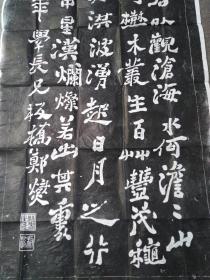 以觀滄海水何澹〻山
樹木叢生百艸豐茂穐
洪波湧起日月之行
中星漢爛燦若出其裏
年學長兄板橋鄭燮